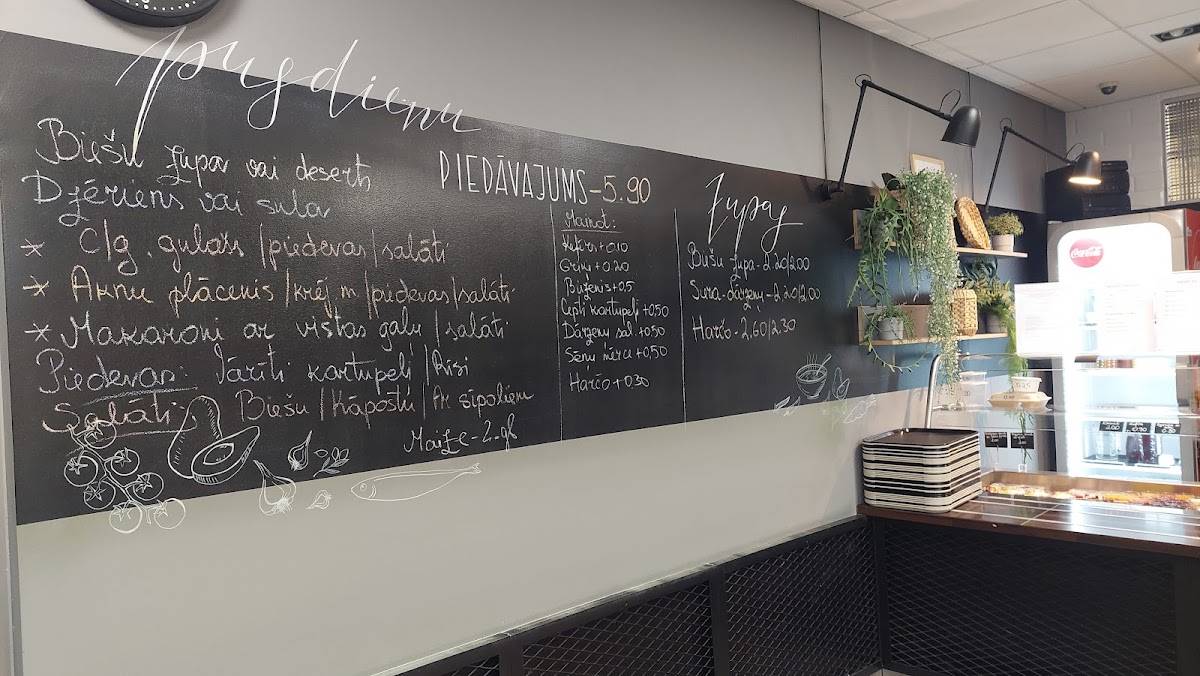 pusdienu
PIEDĀVAJUMS-5.90
Biešu zupa vai deserts
Dzēriens vai sula
* C/g. gulašs/piedevas/salāti
* Aknu plācenis/krēj.m/piedevas/salāti
* Makaroni ar vistas gaļu/salāti
Piedevas: Vārīti kartupeļi/Rīsi
Salāti: Biešu/Kāpostu/Ar sīpoliem
Maize-2.gb
Mainot:
Kefirs+0.10
+0.20
+0.5
Cepti kartupeļi +0,50
Dārzeņu sal. +0,50
Sēņu mērce +0,50
Harčo +0.30
Zupas
Biešu zupa-2.20/2.00
Siera-dārzeņu-2.20/2.00
Harčo-2.60/2.30
Coca-Cola